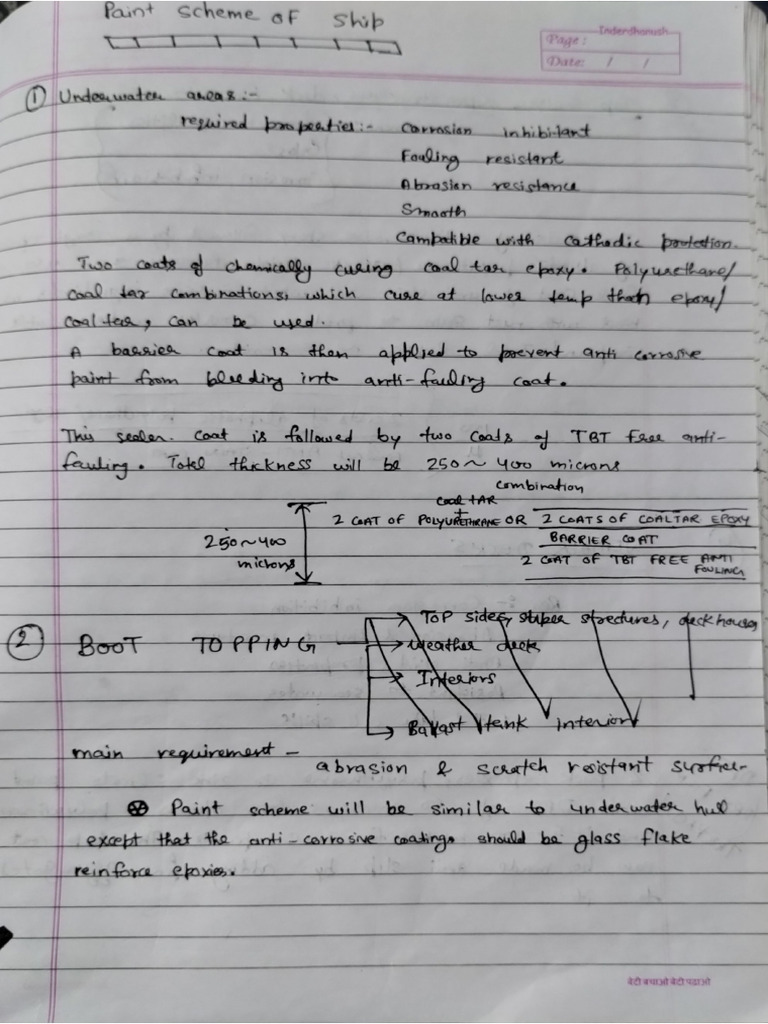 Paint scheme of ship
Inderdhanush
Page:
Date: / /
① Underwater areas:-
required properties:- Corrosion inhibitant
Fouling resistant
Abrasion resistance
Smooth
Compatible with cathodic protection.
Two coats of chemically curing coal tar epoxy. Polyurethane/
coal tar combinations, which cure at lower temp than epoxy/
coal tar, can be used.
A barrier coat is then applied to prevent anti corrosive
paint from bleeding into anti-fouling coat.
This sealer coat is followed by two coats of TBT free anti-
fouling. Total thickness will be 250~400 microns
combination
coal TAR
+
2 COAT OF POLYURETHRANE OR 2 COATS OF COALTAR EPOXY
250~400
microns
BARRIER COAT
2 COAT OF TBT FREE ANTI
FOULING
② BOOT TOPPING
Top sides, super structures, deck houses
weather decks
Interiors
Ballast tank interior
main requirement -
abrasion & scratch resistant surface
Paint scheme will be similar to underwater hull
except that the anti-corrosive coatings should be glass flake
reinforce epoxies.
बेटी बचाओ बेटी पढाओ